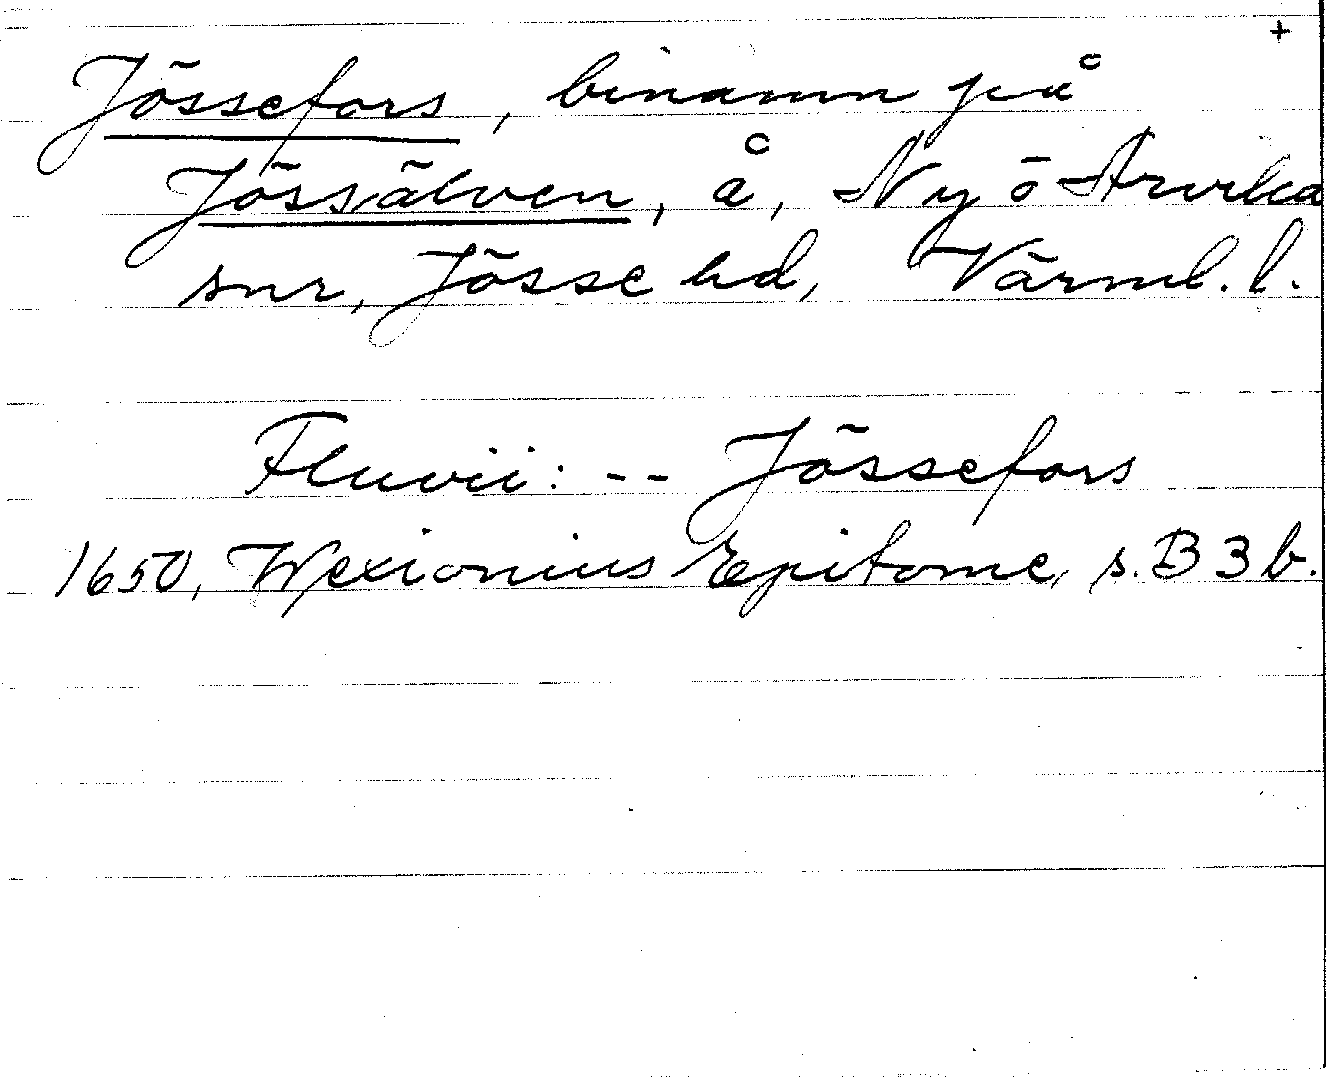 +
Jössefors, binamn på
Jössälven, å, Ny ö Arvika
snr, Jösse hd, Värml. l.
Fluvii: -- Jössefors
1650, Wexionius Epitome, s. B 3 b.